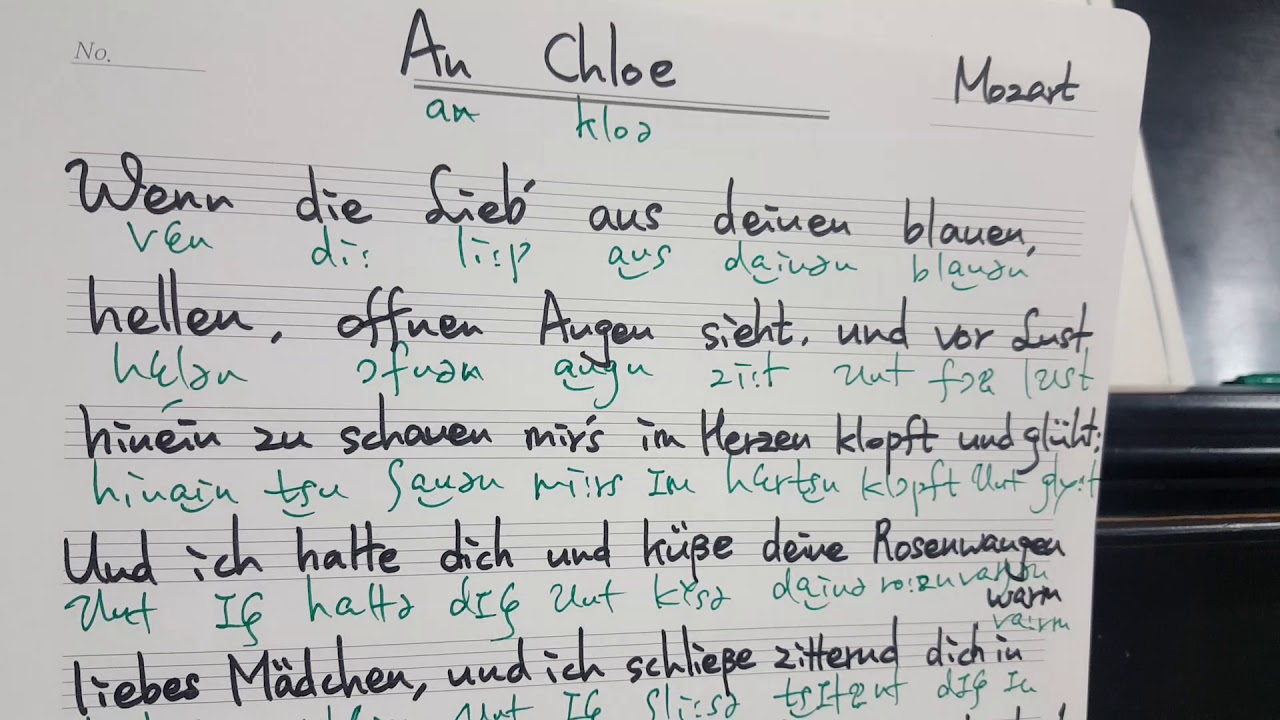 No.
An Chloe
Mozart
an kloə
Wenn die Lieb' aus deinen blauen,
vɛn di: li:p aus dainən blauən
hellen, offnen Augen sieht, und vor Lust
hɛlən ɔfnən augn zi:t ʊnt fɔʀ lʊst
hinein zu schauen mir's im Herzen klopft und glüht:
hinain tsu ʃauən mi:rs ɪm hɛrtsn klɔpft ʊnt gly:t
Und ich halte dich und küße deine Rosenwangen
ʊnt ɪç haltə dɪç ʊnt kʏsə dainə ro:znvaŋən
warm
va:rm
liebes Mädchen, und ich schließe zitternd dich in
ʊnt ɪç ʃli:sə tsɪtɐnt dɪç ɪn